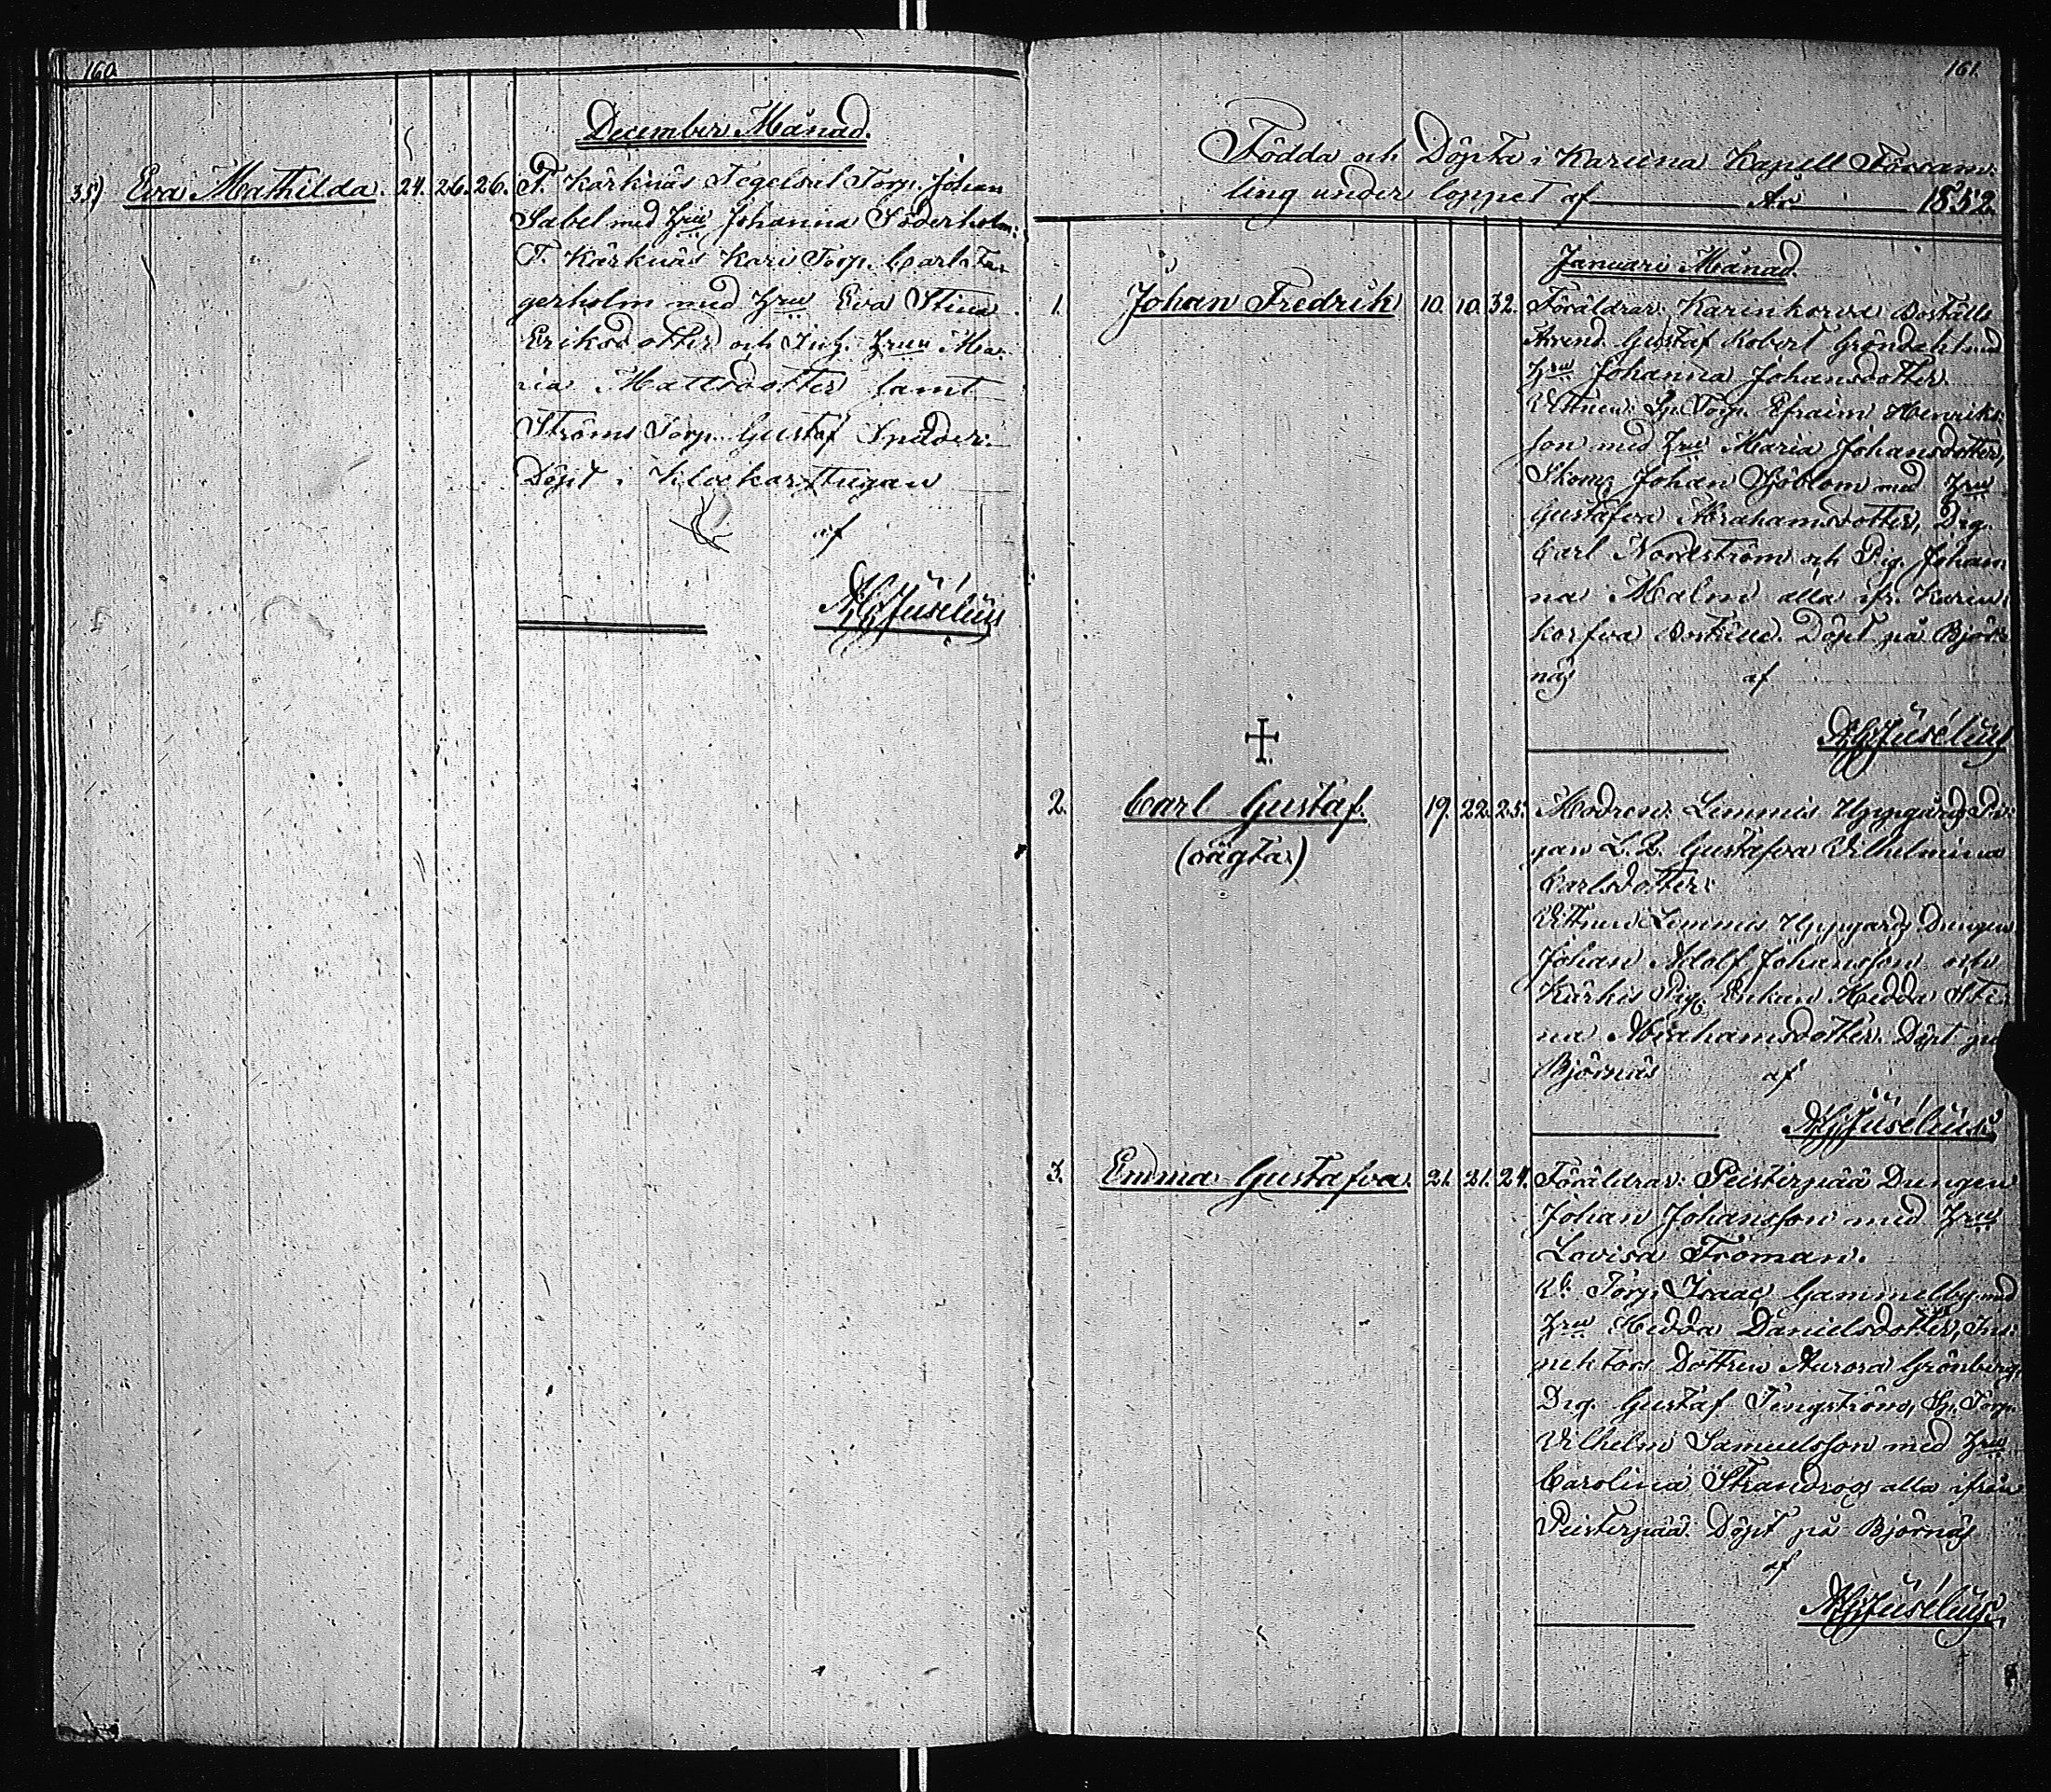 160.
December Månad.
35) Eva Mathilda. 24. 26. 26. F. Kärknäs Tegelsal Torp. Johan
Sabel med Hru Johanna Söderholm:
F. Kärknäs Kari Torp. Carl Fa-
gerholm med Hru Eva Stina
Eriksdotter och Inh. Hrun Ma-
ria Mattsdotter samt
Ströms Torp. Gustaf Spidver.
Döpt i Klockarstugan
af
161.
Födda och Döpta i Karuna Kapell Församl:
ling under loppet af År 1852.
Januari Månad.
1. Johan Fredrik 10. 10. 32. Föräldrar: Karinkorva Boställs
Arrend. Gustaf Robert Gröndahl med
Hru Johanna Johansdotter.
Vittnen: Sp. Torp. Efraim Henriks-
son med Hru Maria Johansdotter,
Skom. Johan Sjöblom med Hru
Gustafva Abrahamsdotter, Drg.
Carl Nordström och Pig. Johan-
na Malm alla ifr. Karin-
korfva Boställe. Döpt på Björ-
näs af
2. Carl Gustaf. 19. 22. 25. Modren: Lemmis Uppgårds Pi-
gan L. Z. Gustafva Vilhelmina
Carlsdotter:
(oägta.)
Vittnen Lemmis Uppgårds Drängen
Johan Adolf Johansson och
Kärkis Pig. Enkan Hedda Sti-
na Abrahamsdotter. Döpt på
Björnäs af
3. Emma Gustafva. 21. 21. 24. Föräldrar: Peisterpää Drängen
Johan Johansson med Hru
Lovisa Froman.
Torp. Isaac Gammelby med
Hru Hedda Danielsdotter, Ins-
pektors Dottren Aurora Grönberg,
Drg. Gustaf Tengström, Sp. Torp.
Vilhelm Samuelsson med Hru
Carolina Strandroos alla ifrån
Peisterpää. Döpt på Björnäs
af